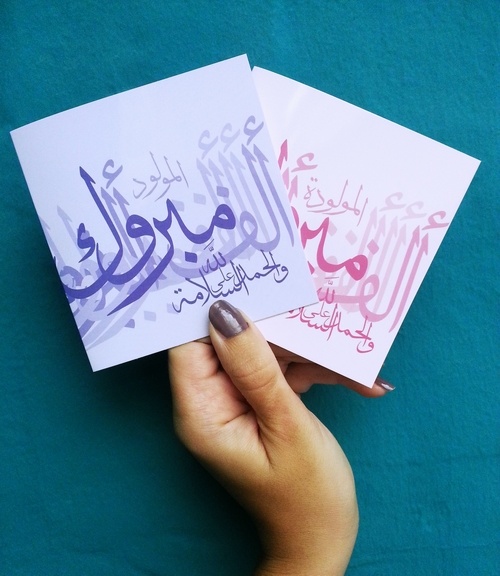 المولود
ألف مبروك
والحمد لله على السلامة
المولودة
ألف مبر
والحمد لله على السلامة